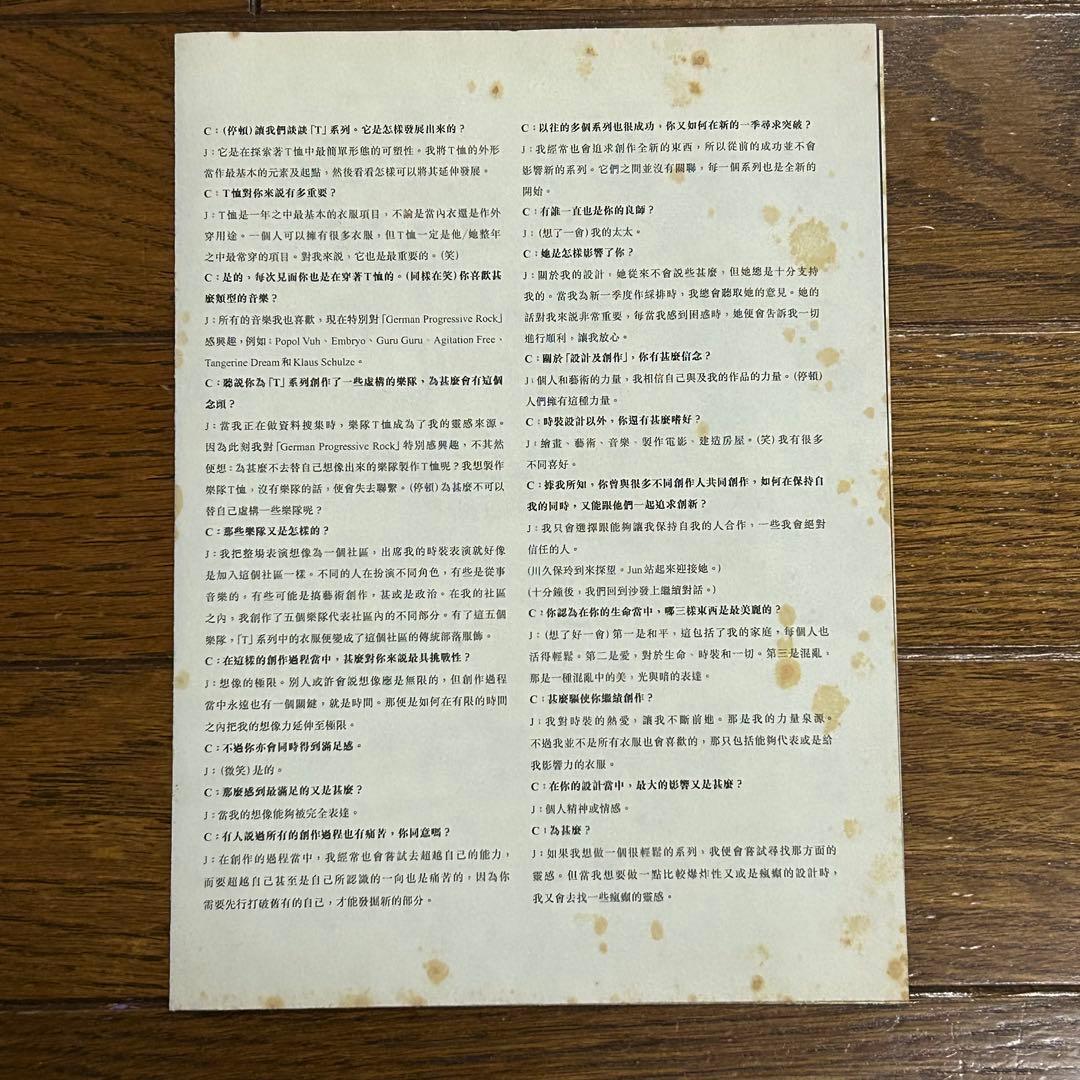 C：(停頓) 讓我們談談「T」系列。它是怎樣發展出來的？
J：它是在探索著T恤中最簡單形態的可塑性。我將T恤的外形
當作最基本的元素及起點，然後看看怎樣可以將其延伸發展。
C：T恤對你來說有多重要？
J：T恤是一年之中最基本的衣服項目，不論是當內衣還是作外
穿用途。一個人可以擁有很多衣服，但T恤一定是他/她整年
之中最常穿的項目。對我來說，它也是最重要的。(笑)
C：是的，每次見面你也是在穿著T恤的。(同樣在笑) 你喜歡甚
麼類型的音樂？
J：所有的音樂我也喜歡，現在特別對「German Progressive Rock」
感興趣，例如：Popol Vuh、Embryo、Guru Guru、Agitation Free、
Tangerine Dream和Klaus Schulze。
C：聽説你為「T」系列創作了一些虛構的樂隊，為甚麼會有這個
念頭？
J：當我正在做資料搜集時，樂隊T恤成為了我的靈感來源。
因為此刻我對「German Progressive Rock」特別感興趣，不其然
便想：為甚麼不去替自己想像出來的樂隊製作T恤呢？我想製作
樂隊T恤，沒有樂隊的話，便會失去聯繫。(停頓) 為甚麼不可以
替自己虛構一些樂隊呢？
C：那些樂隊又是怎樣的？
J：我把整場表演想像為一個社區，出席我的時裝表演就好像
是加入這個社區一樣。不同的人在扮演不同角色，有些是從事
音樂的。有些可能是搞藝術創作，甚或是政治。在我的社區
之內，我創作了五個樂隊代表社區內的不同部分。有了這五個
樂隊，「T」系列中的衣服便變成了這個社區的傳統部落服飾。
C：在這樣的創作過程當中，甚麼對你來說最具挑戰性？
J：想像的極限。別人或許會説想像應是無限的，但創作過程
當中永遠也有一個關鍵，就是時間。那便是如何在有限的時間
之內把我的想像力延伸至極限。
C：不過你亦會同時得到滿足感。
J：(微笑) 是的。
C：那麼感到最滿足的又是甚麼？
J：當我的想像能夠被完全表達。
C：有人説過所有的創作過程也有痛苦，你同意嗎？
J：在創作的過程當中，我經常也會嘗試去超越自己的能力，
而要超越自己甚至是自己所認識的一向也是痛苦的，因為你
需要先行打破舊有的自己，才能發掘新的部分。
C：以往的多個系列也很成功，你又如何在新的一季尋求突破？
J：我經常也會追求創作全新的東西，所以從前的成功並不會
影響新的系列。它們之間並沒有關聯，每一個系列也是全新的
開始。
C：有誰一直也是你的良師？
J：(想了一會) 我的太太。
C：她是怎樣影響了你？
J：關於我的設計，她從來不會説些甚麼，但她總是十分支持
我的。當我為新一季度作綵排時，我總會聽取她的意見。她的
話對我來說非常重要，每當我感到困惑時，她便會告訴我一切
進行順利，讓我放心。
C：關於「設計及創作」，你有甚麼信念？
J：個人和藝術的力量，我相信自己與及我的作品的力量。(停頓)
人們擁有這種力量。
C：時裝設計以外，你還有甚麼嗜好？
J：繪畫、藝術、音樂、製作電影、建造房屋。(笑) 我有很多
不同喜好。
C：據我所知，你曾與很多不同創作人共同創作，如何在保持自
我的同時，又能跟他們一起追求創新？
J：我只會選擇跟能夠讓我保持自我的人合作，一些我會絕對
信任的人。
(川久保玲到來探望。Jun站起來迎接她。)
(十分鐘後，我們回到沙發上繼續對話。)
C：你認為在你的生命當中，哪三樣東西是最美麗的？
J：(想了好一會) 第一是和平，這包括了我的家庭，每個人也
活得輕鬆。第二是愛，對於生命、時裝和一切。第三是混亂，
那是一種混亂中的美，光與暗的表達。
C：甚麼驅使你繼續創作？
J：我對時裝的熱愛，讓我不斷前進。那是我的力量泉源。
不過我並不是所有衣服也會喜歡的，那只包括能夠代表或是給
我影響力的衣服。
C：在你的設計當中，最大的影響又是甚麼？
J：個人精神或情感。
C：為甚麼？
J：如果我想做一個很輕鬆的系列，我便會嘗試尋找那方面的
靈感。但當我想要做一點比較爆炸性又或是瘋癲的設計時，
我又會去找一些瘋癲的靈感。